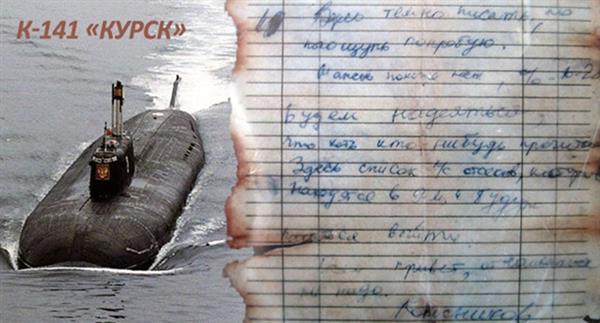 К-141 «КУРСК»
Здесь темно писать, но
наощупь попробую.
Шансов похоже нет, %
Будем надеяться,
что хоть кто-нибудь прочита
Здесь список л/с отсеков, котор
находятся в 9-м и будут
выйти.
привет, отчаиваться
не надо.
Колесников